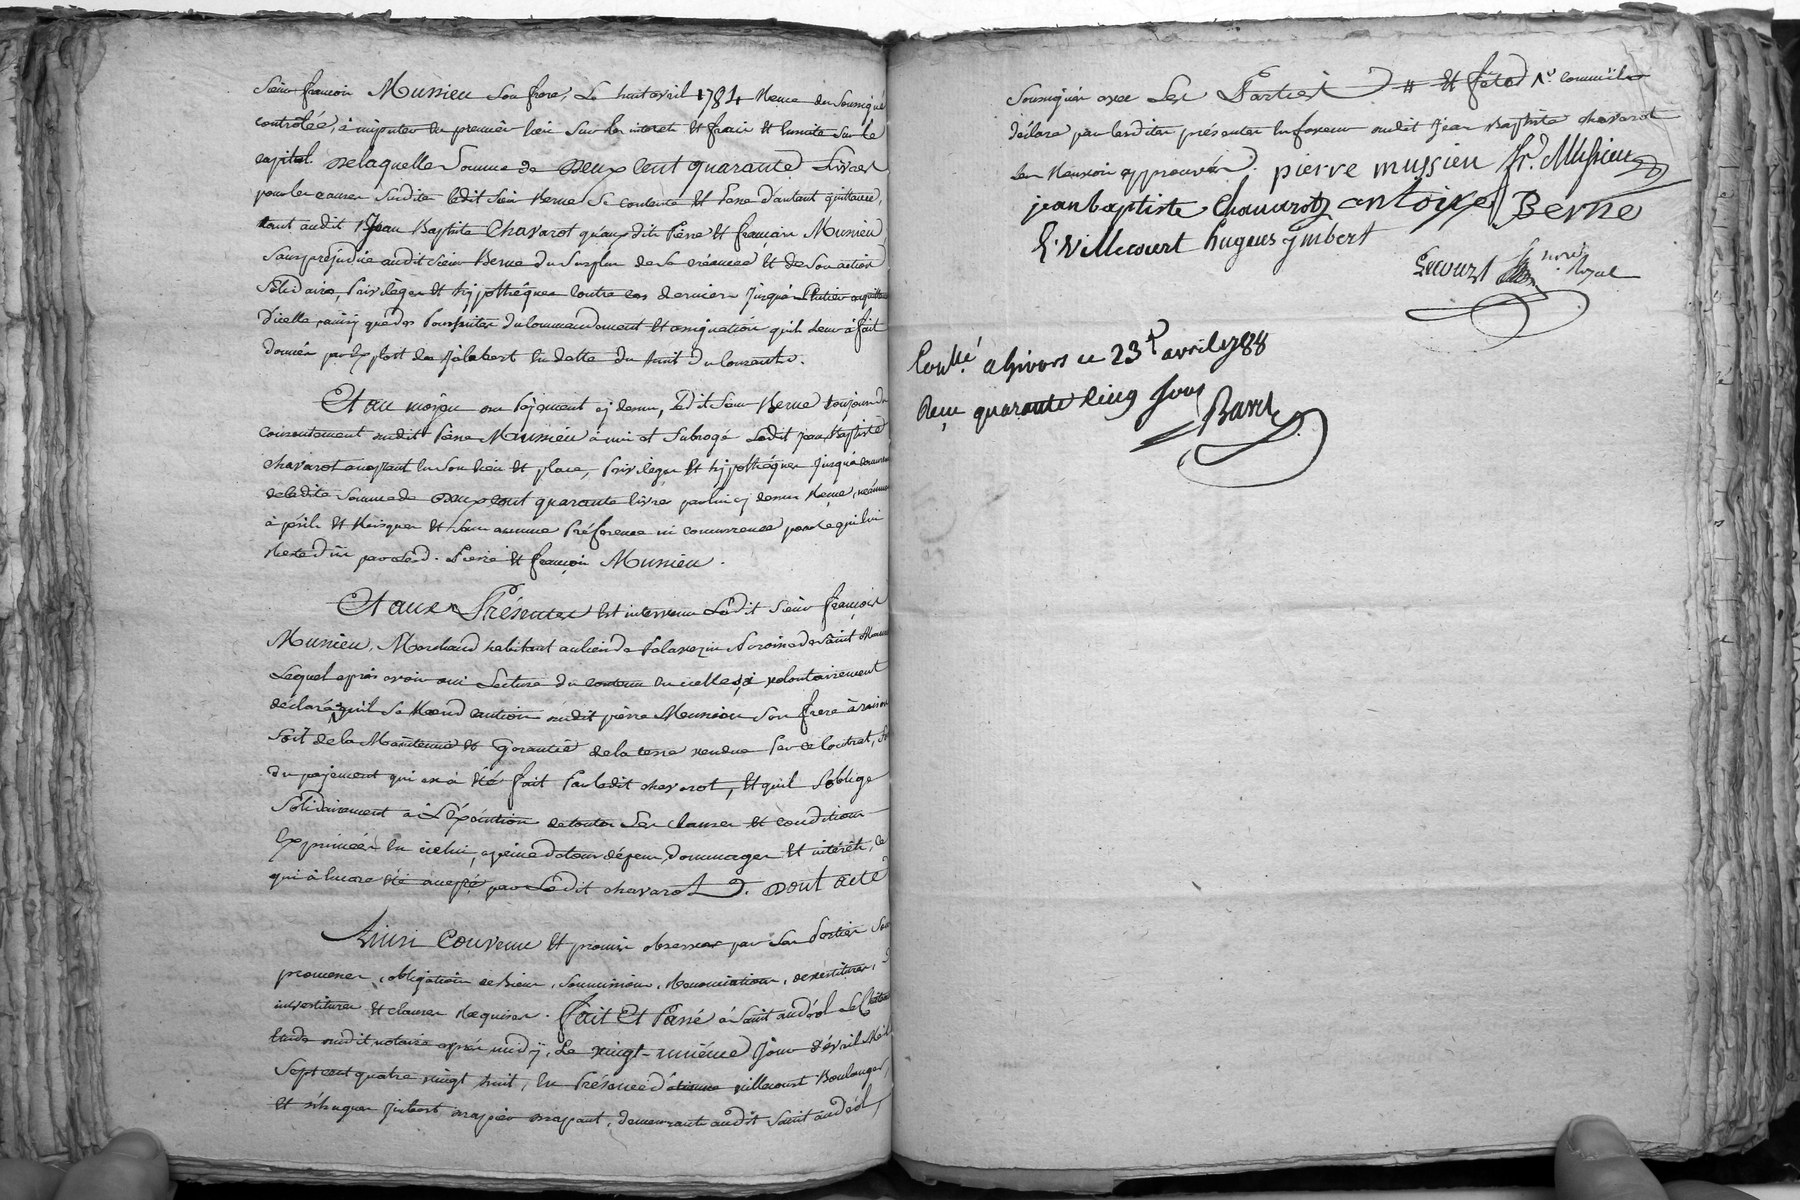 Sieur françois Mussieu son frere, Le huit avril 1784 Recue du soussigné
controlée, à imputer en premier lieu sur les interets et frais et ensuite sur le
capital. de laquelle Somme de Deux Cent quarante Livres
pour les causes susdites ledit Sieur Berne Se contente et Passe d'autant quittance,
tant audit Jean Baptiste Chavarot qu'auxdits Pierre et françois Mussieu,
sans préjudice audit Sieur Berne du surplus de sa créance et de son action
Solidaire, Privilèges et hypothéques contre ces derniers jusqu'à Entier acquittement
d'icelle, ainsi que des Poursuites du Commandement et assignation qu'il leur à fait
donner par Exploit de Jalabert En datte du huit du Courant.
Et au moyen du Payement cy dessus, Ledit Sieur Berne toujours du
consentement dudit Pierre Mussieu à mis et Subrogé Ledit Jean Baptiste
Chavarot acceptant En son lieu et place, Privilèges et hypothéques jusqu'à
de ladite Somme de Deux Cent quarante livres par lui cy dessus Recue,
à périls et Risques et sans aucune Préférence ni concurrence pour ce qui lui
Reste Dû par Lesd. Pierre et françois Mussieu.
Et aux Présentes Est intervenu Ledit Sieur françois
Mussieu, Marchand habitant au lieu de Palavezin Paroisse de Saint
Lequel après avoir oui Lecture du contenu En icelles, à volontairement
déclaré qu'il Se Rend caution dudit pierre Mussieu Son frere à raison
Soit de la Maintenue et Garantie de la terre vendue Par ce Contrat,
du payement qui en à été fait Par ledit chavarot, Et qu'il s'oblige
Solidairement à L'Exécution de toutes Les Clauses Et conditions
Exprimées En icelui, à peine de tous dépens, dommages Et intérêts, ce
qui à Encore été accepté par Ledit chavarot. Dont acte
Ainsi Convenu Et promis observer par Les Parties Sous
promesses, obligation de Biens, Soumissions, Renonciations, devestitures,
investitures Et clauses Requises. Fait Et Passé à Saint andéol Le Château
Etude dudit notaire après midy, Le vingt-unième Jour d'Avril Mil
Sept cent quatre vingt huit, En Présence d'étienne villecourt Boulanger,
Et d'hugues Imbert, demeurants audit Saint andéol,
Soussignés avec Les Parties Et
déclaré par lesdites présentes En faveur dudit Jean Baptiste chavarot
Les Renvois approuvés. pierre mussieu fr. Mussieu
jean baptiste Chavarot antoine Berne
E. Villecourt hugues jmbert
Lecourt nore Royal
Conllé. a Givors ce 23 avril 1788
Reçu quarante Cinq sous